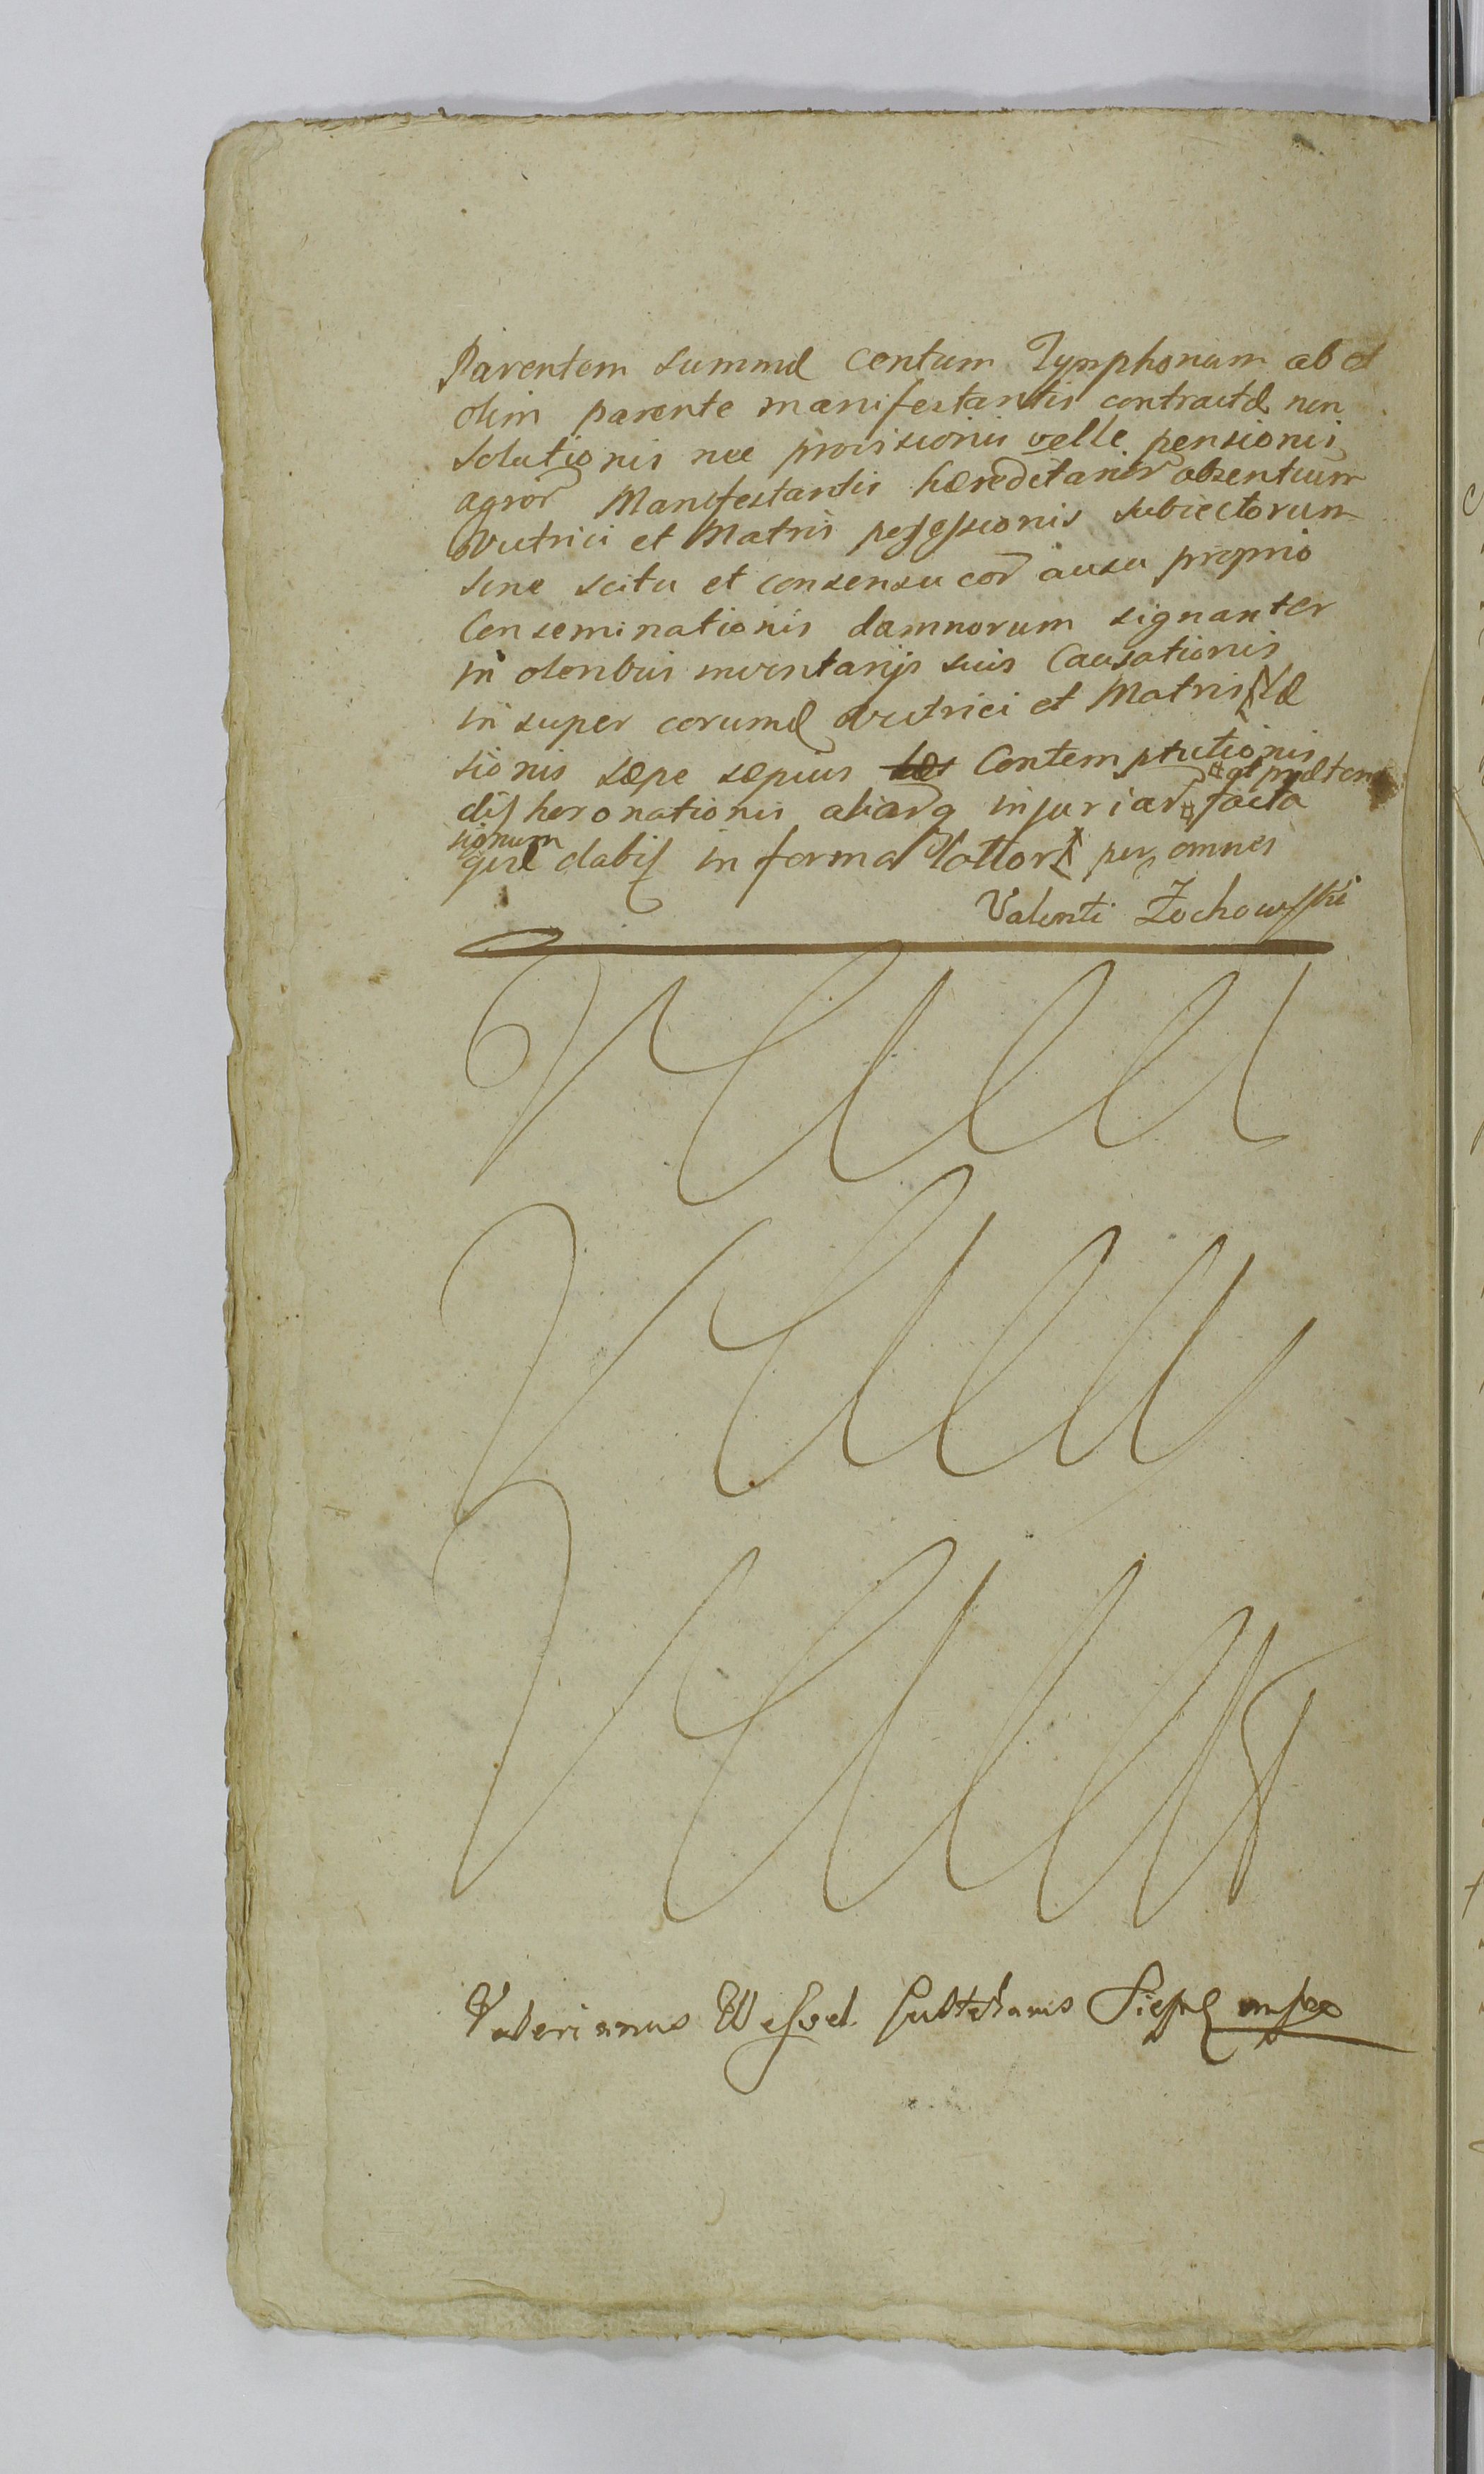 Parentem summæ centum Tymphonum ab et
olim parente manifestantis contractæ non
solutionis nec provisionis velle pensionis
agror Manifestantis hæreditarior absentium
Vitrici et Matris possessionis subiectorum
sine scitu et consensu eor ausu proprio
Conseminationis damnorum signanter
in oleribus inventarijs suis Causationis
in super eorumd Vitrici et Matris Læ
sionis sæpe sæpius Contemptutionis
dishonorationis aliarq injuriar et præten
sionum facta
gnl dabit in forma per omnes
Valenti Zochowski
Valerianus Wessel